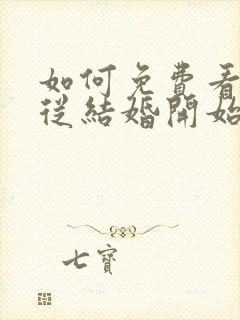 如何免費看
從結婚開始
七寶